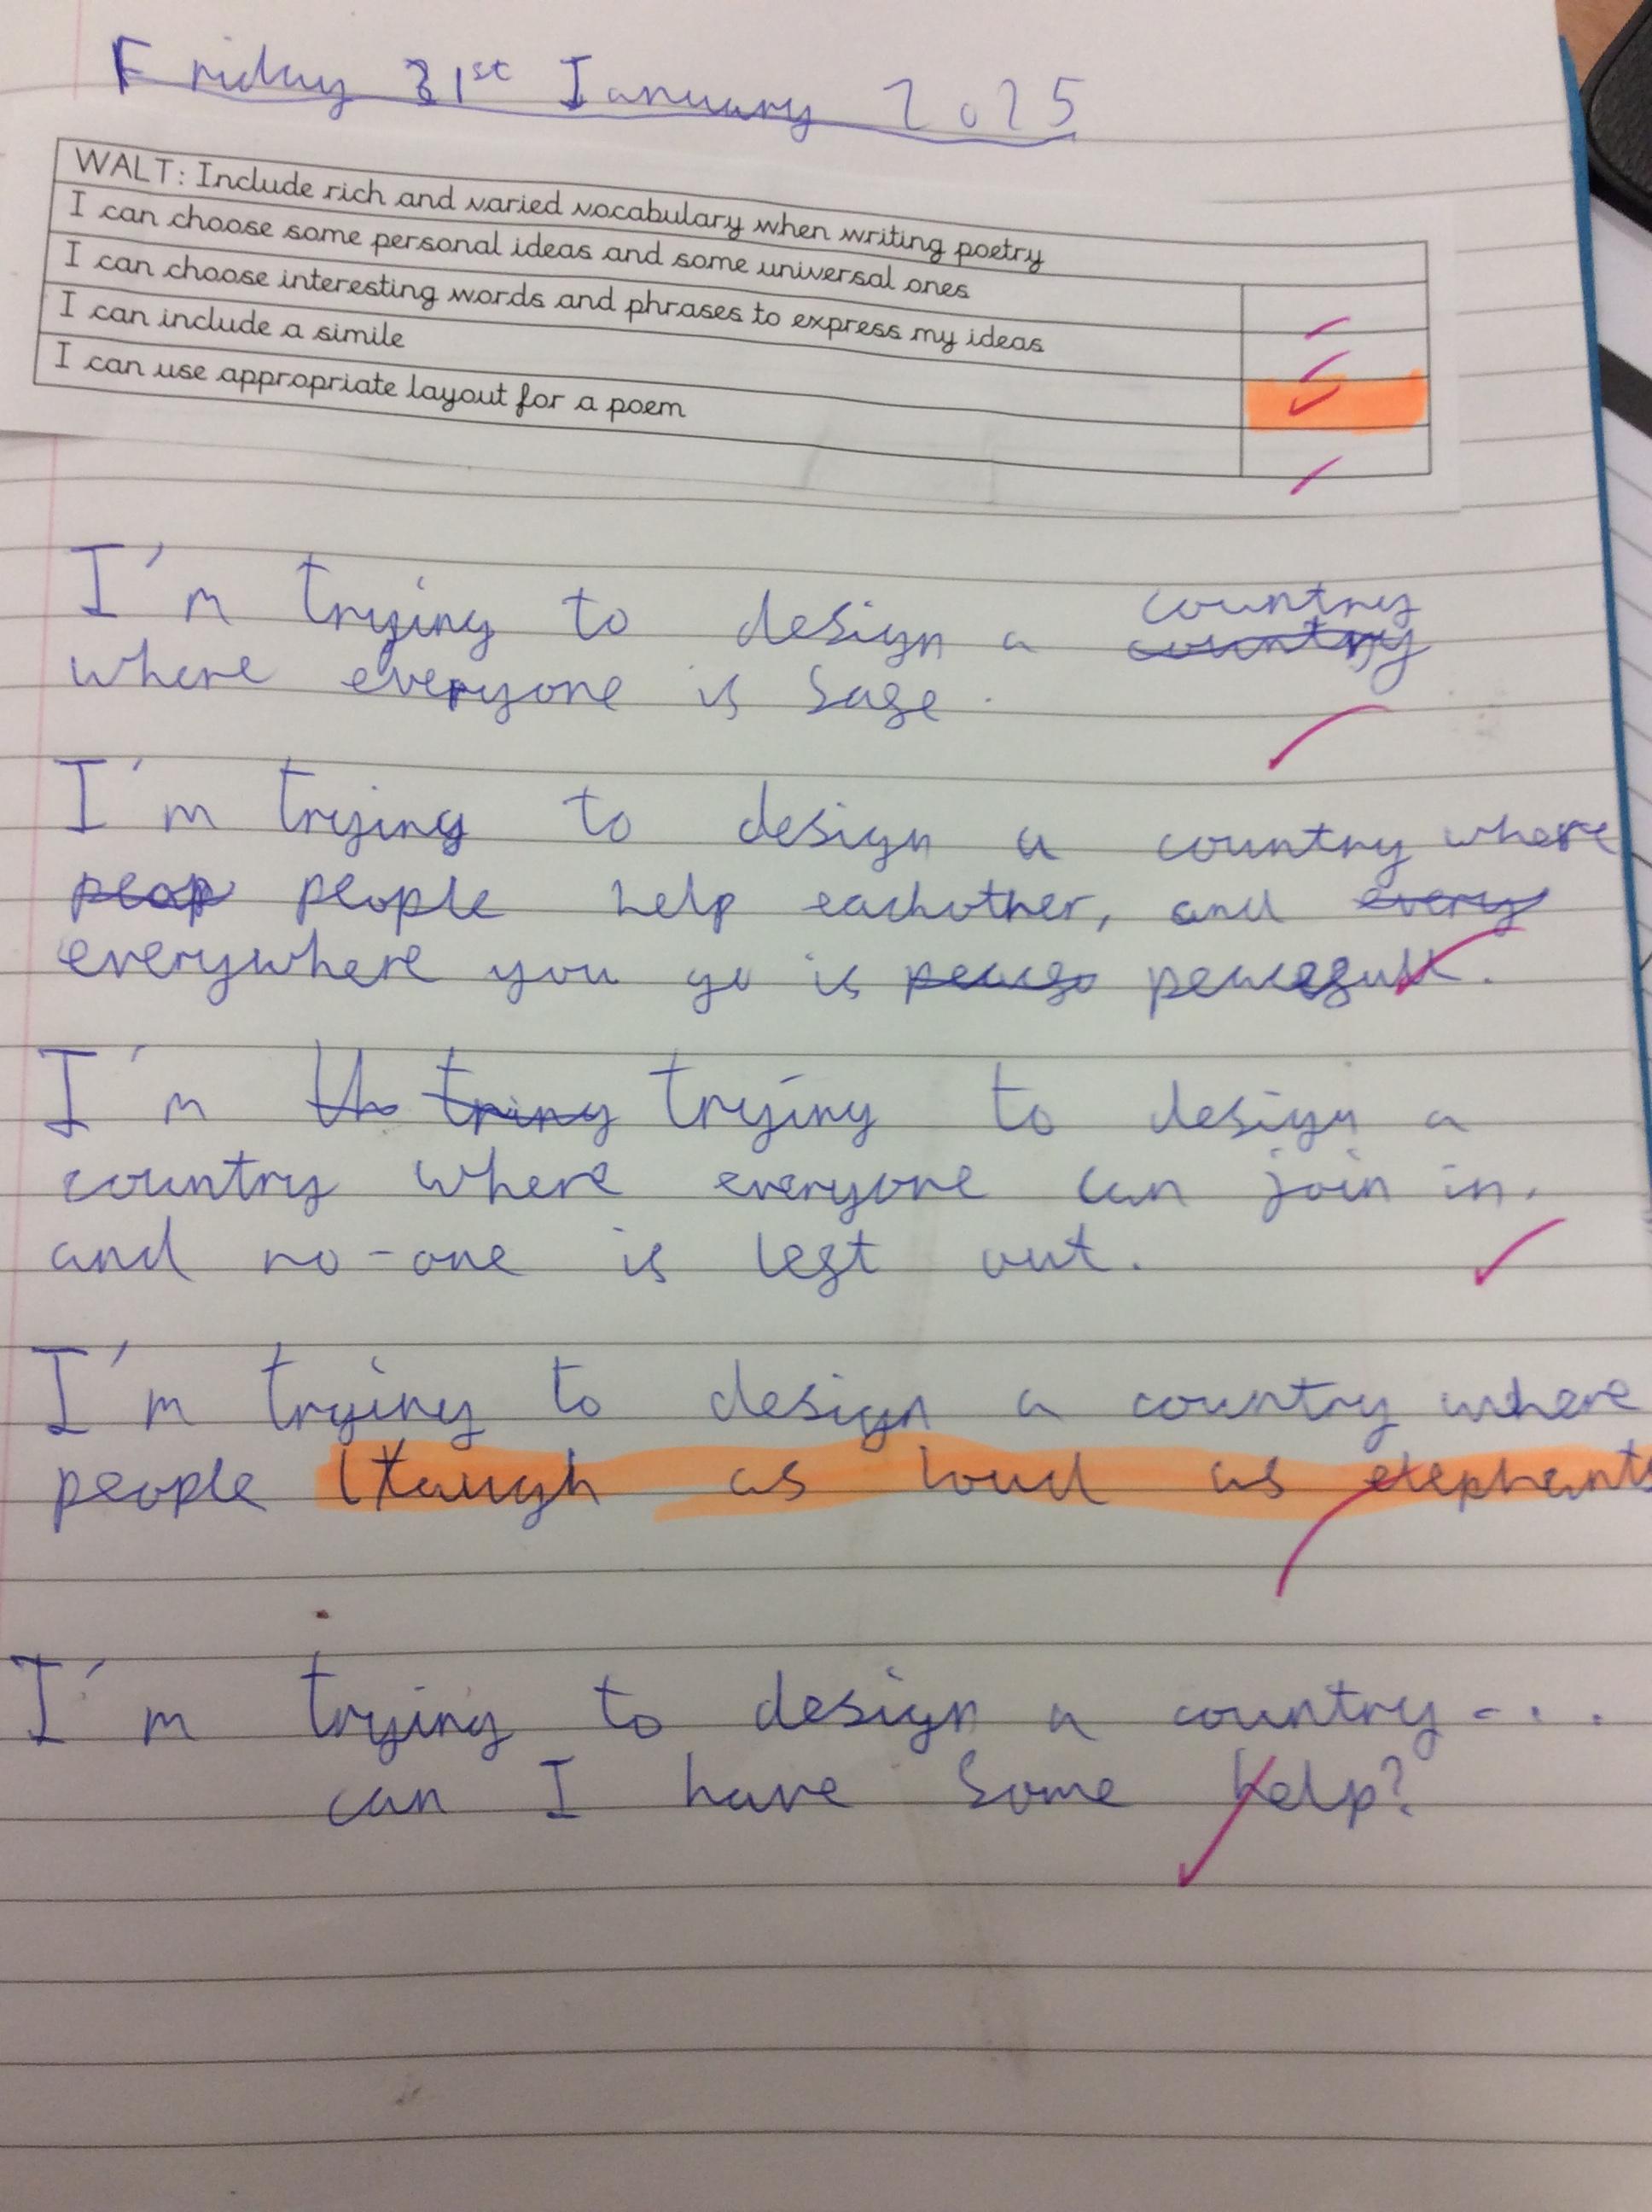 Friday 31st January 2025
WALT: Include rich and varied vocabulary when writing poetry
I can choose some personal ideas and some universal ones
I can choose interesting words and phrases to express my ideas
I can include a simile
I can use appropriate layout for a poem
I'm trying to design a country country
where everyone is safe.
I'm trying to design a country where
peop people help eachother, and every
everywhere you go is peacfo peacefull.
I'm th triny trying to design a
country where everyone can join in,
and no-one is left out.
I'm trying to design a country where
people laugh as loud as elephants
I'm trying to design a country....
can I have some help?